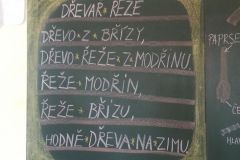 DŘEVAR ŘEŽE
DŘEVO Z BŘÍZY,
DŘEVO ŘEŽE Z MODŘÍNU.
ŘEŽE MODŘÍN,
ŘEŽE BŘÍZU,
HODNĚ DŘEVA NA ZIMU.
PAPRSE